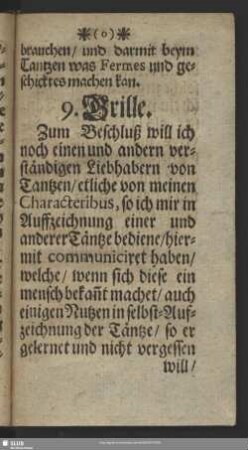 (o)
brauchen/ und darmit beym
Tantzen was Fermes und ge-
schicktes machen kan.
9. Grille.
Zum Beschluß will ich
noch einen und andern ver-
ständigen Liebhabern von
Tantzen/ etliche von meinen
Characteribus, so ich mir in
Auffzeichnung einer und
anderer Täntze bediene/ hier-
mit communiciret haben/
welche/ wenn sich diese ein
mensch bekañt machet/ auch
einigen Nutzen in selbst-Auf-
zeichnung der Täntze/ so er
gelernet und nicht vergessen
will/
SLUB